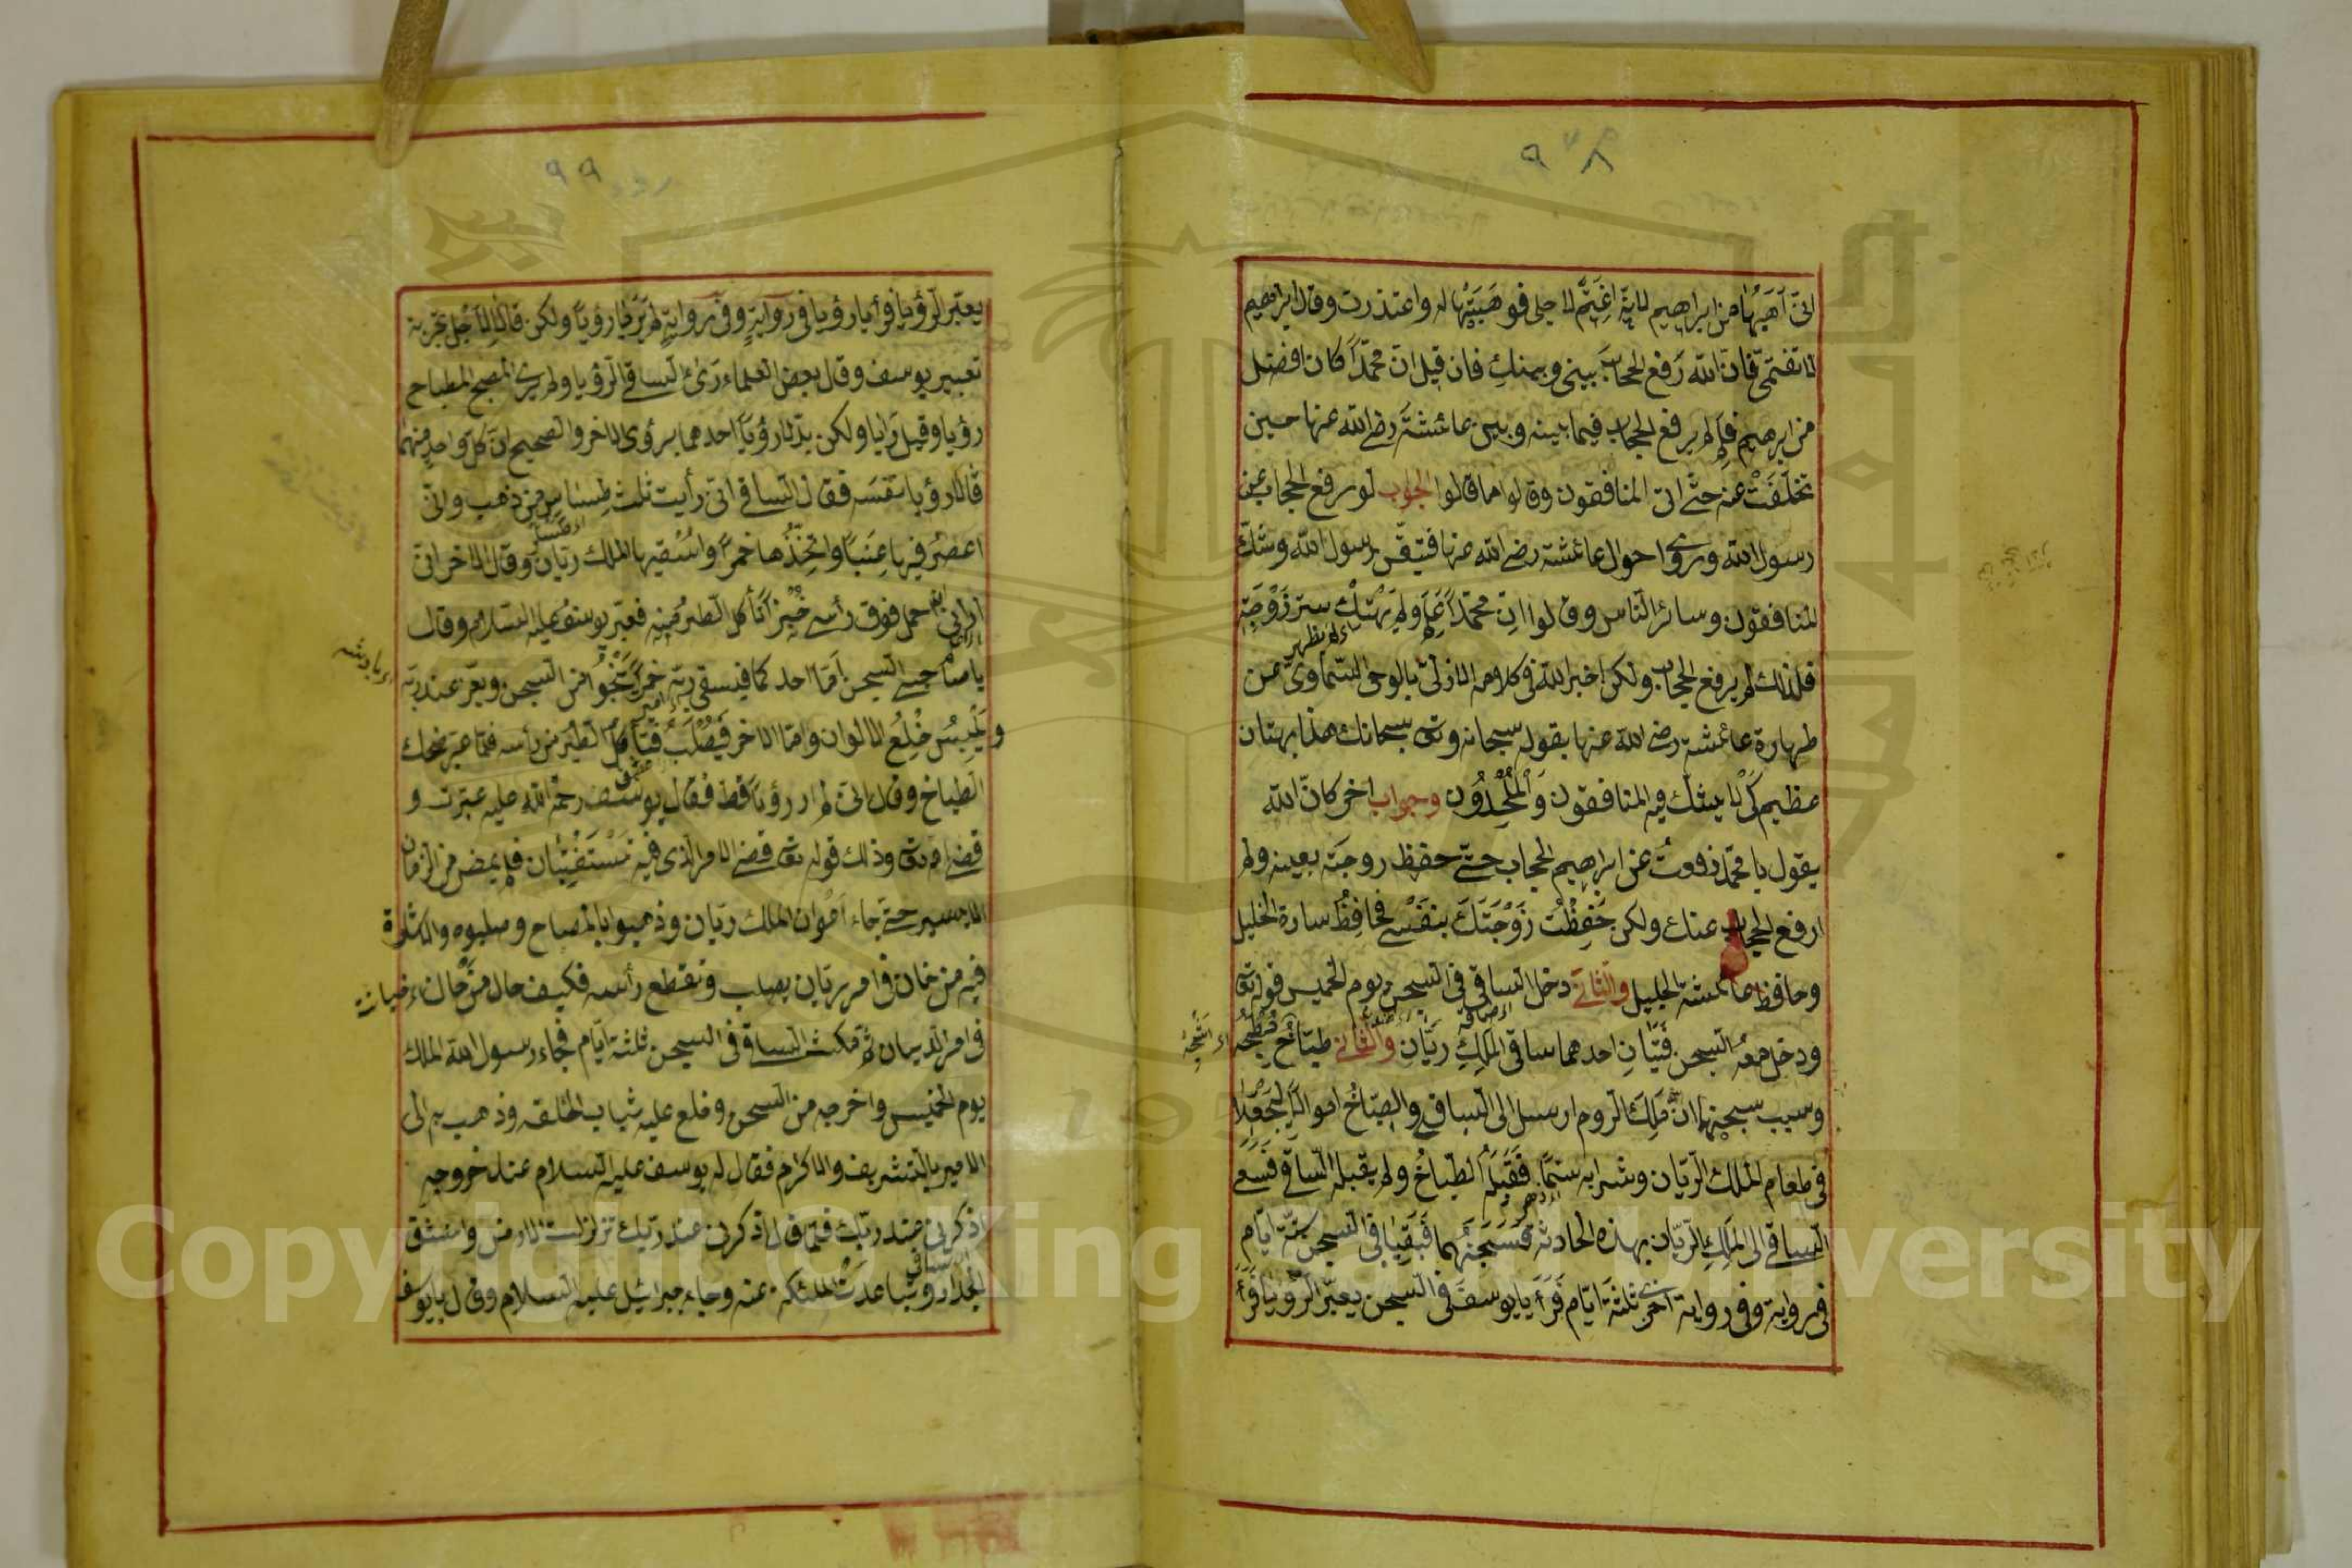 ٩٨
انّي اَهَبُهٰا من ابراهيم لانّه اغتمّ لاجلي فوهَبَتْها له واعتذرت وقال ابراهيم
لا تغتمّي فانّ الله رَفع الحجاب بيني وبينكِ فان قيل انّ محمّدًا كان افضل
من ابرهيم فلِمَ لم يرفع الحجاب فيما بينه وبين عائشَة رضي الله عنها حين
تخلّفَتْ عنه حتّى انّ المنافقون وقالوا ما قالوا الجواب لو رفع الحجاب عن
رسول الله وروى احوال عائشة رضي الله عنها فتيقّن رسول الله وشكّ
المنافقون وسائر النّاس وقالوا انّ محمّدًا عَلِمَ ولم يَهْتِكْ ستر زَوْجَتِهِ
اى لم يظهر
فلذلك لم يرفع الحجاب ولكن اخبر الله في كلامه الازليّ بالوحى السّماوىّ عن
طهارة عائشة رضي الله عنها بقوله سبحانه وتعٰ سبحانك هذا بهتان
عظيم كَىْ لا يشكّ فيه المنافقون وَالْمُلْحِدُوْن وجواب اخر كانّ الله
يقول يا محمّد رفعتُ عن ابراهيم الحجاب حتّى حفظ زوجَته بعينه ولم
ارفع الحجاب عنك ولكن حَفِظْتُ زَوْجَتَكَ بنفْسي فحافِظُ سارة الخليل
وحافظ عائشة الجليل والثّاني دخل السّاقي في السّجن يوم الخميس قوله تعٰ
ودخل معهُ السّجن فَتَيَانِ احدهما ساقي المَلِكِ رَيّان والثّاني طبّاخ مطبخه
وسبب سجنهما انّ مَلِكَ الرّوم ارسل الى السّاقي والطبّاخ اموالًا ليَجْعَلا
في طعام الملك الرّيّان وشرابه سَمًّا فَقَبِلَهُ الطبّاخُ ولم يقبله السّاقي فَسَعى
السّاقي الى المَلِكِ الرّيّان بهذه الحادثة فَسَجَنَهُما فَبَقِيَا في السّجن ستّة ايّام
في رواية وفي رواية اخرى ثلثَة ايّام فَرَأَيا يوسفَ في السّجن يعبّر الرّؤيا فَرَأَ
٩٩
يعبّر الرّؤيا فرأيا رؤيا في روايةٍ وفي روايةٍ لم يَرَيا رؤيًا ولكن قالا لاجل تجربة
تعبير يوسف وقال بعض العلماء رَىٰ السّاقي الرّؤيا ولم يرى المطباح
رؤيا وقيل رَايا ولكن بدّلا رؤيًا احدهما برؤى الاخر والصحيح انّ كلّ واحدٍ منهما
قالا رؤيا نفسَه فقال السّاقي انّي رأيت ثلث طساس من ذهب وانّي
اعصرُ فيها عِنَبًا واتّخِذُها خمرًا واُسْقيها الملك ريّان وقال الاخر انّي
اراني احمل فوق رأسي خُبْزًا تأكل الطّير منه فعبّر يوسف عليه السّلام وقال
يا صاحبي السّجن اَمّا احدكما فيسقي ربّه خمرًا يَنْجُو من السّجن وبقرّ عند ربّه
ويَلْبِسُ خُلِعُ الالوان وامّا الاخر فيُصْلَبُ فتأكلُ الطّير من رأسه فلمّا عبّر ضحك
الطّباخ وقال انّي لم ار رؤيًا قطّ فقال يوسف رحمة الله عليه عبّرت و
قضى الله تعٰ وذلك قوله تعٰ قضى الامر الّذى فيه تَسْتَفْتِيَان فلم يمض من الزمان
الا يسير حتّى جاء اعوان الملك ريّان وذهبوا بالمصاح وصلبوه والاشارة
فيه من خان في امر ريّان يصلب وتقطع رأسه فكيف حال من خان
خيانت
في امر الديان ثمّ مكث السّاقي في السّجن ثلثة ايّام فجاء رسول الله الملك
يوم الخميس واخرجه من السّجن وخلع عليه ثياب الخلقه وذهب به الى
الامير بالتشريف والاكرام فقال له يوسف عليه السّلام عند خروجه
اذكرني عند ربّك فلمّا قال اذكرني عند ربّك تزلزلت الارض وانشقّ
الجدار وتباعدتُ الملئكة عنه وجاء جبرائيل عليه السّلام وقال يا يوسف
Copyright © King Saud University